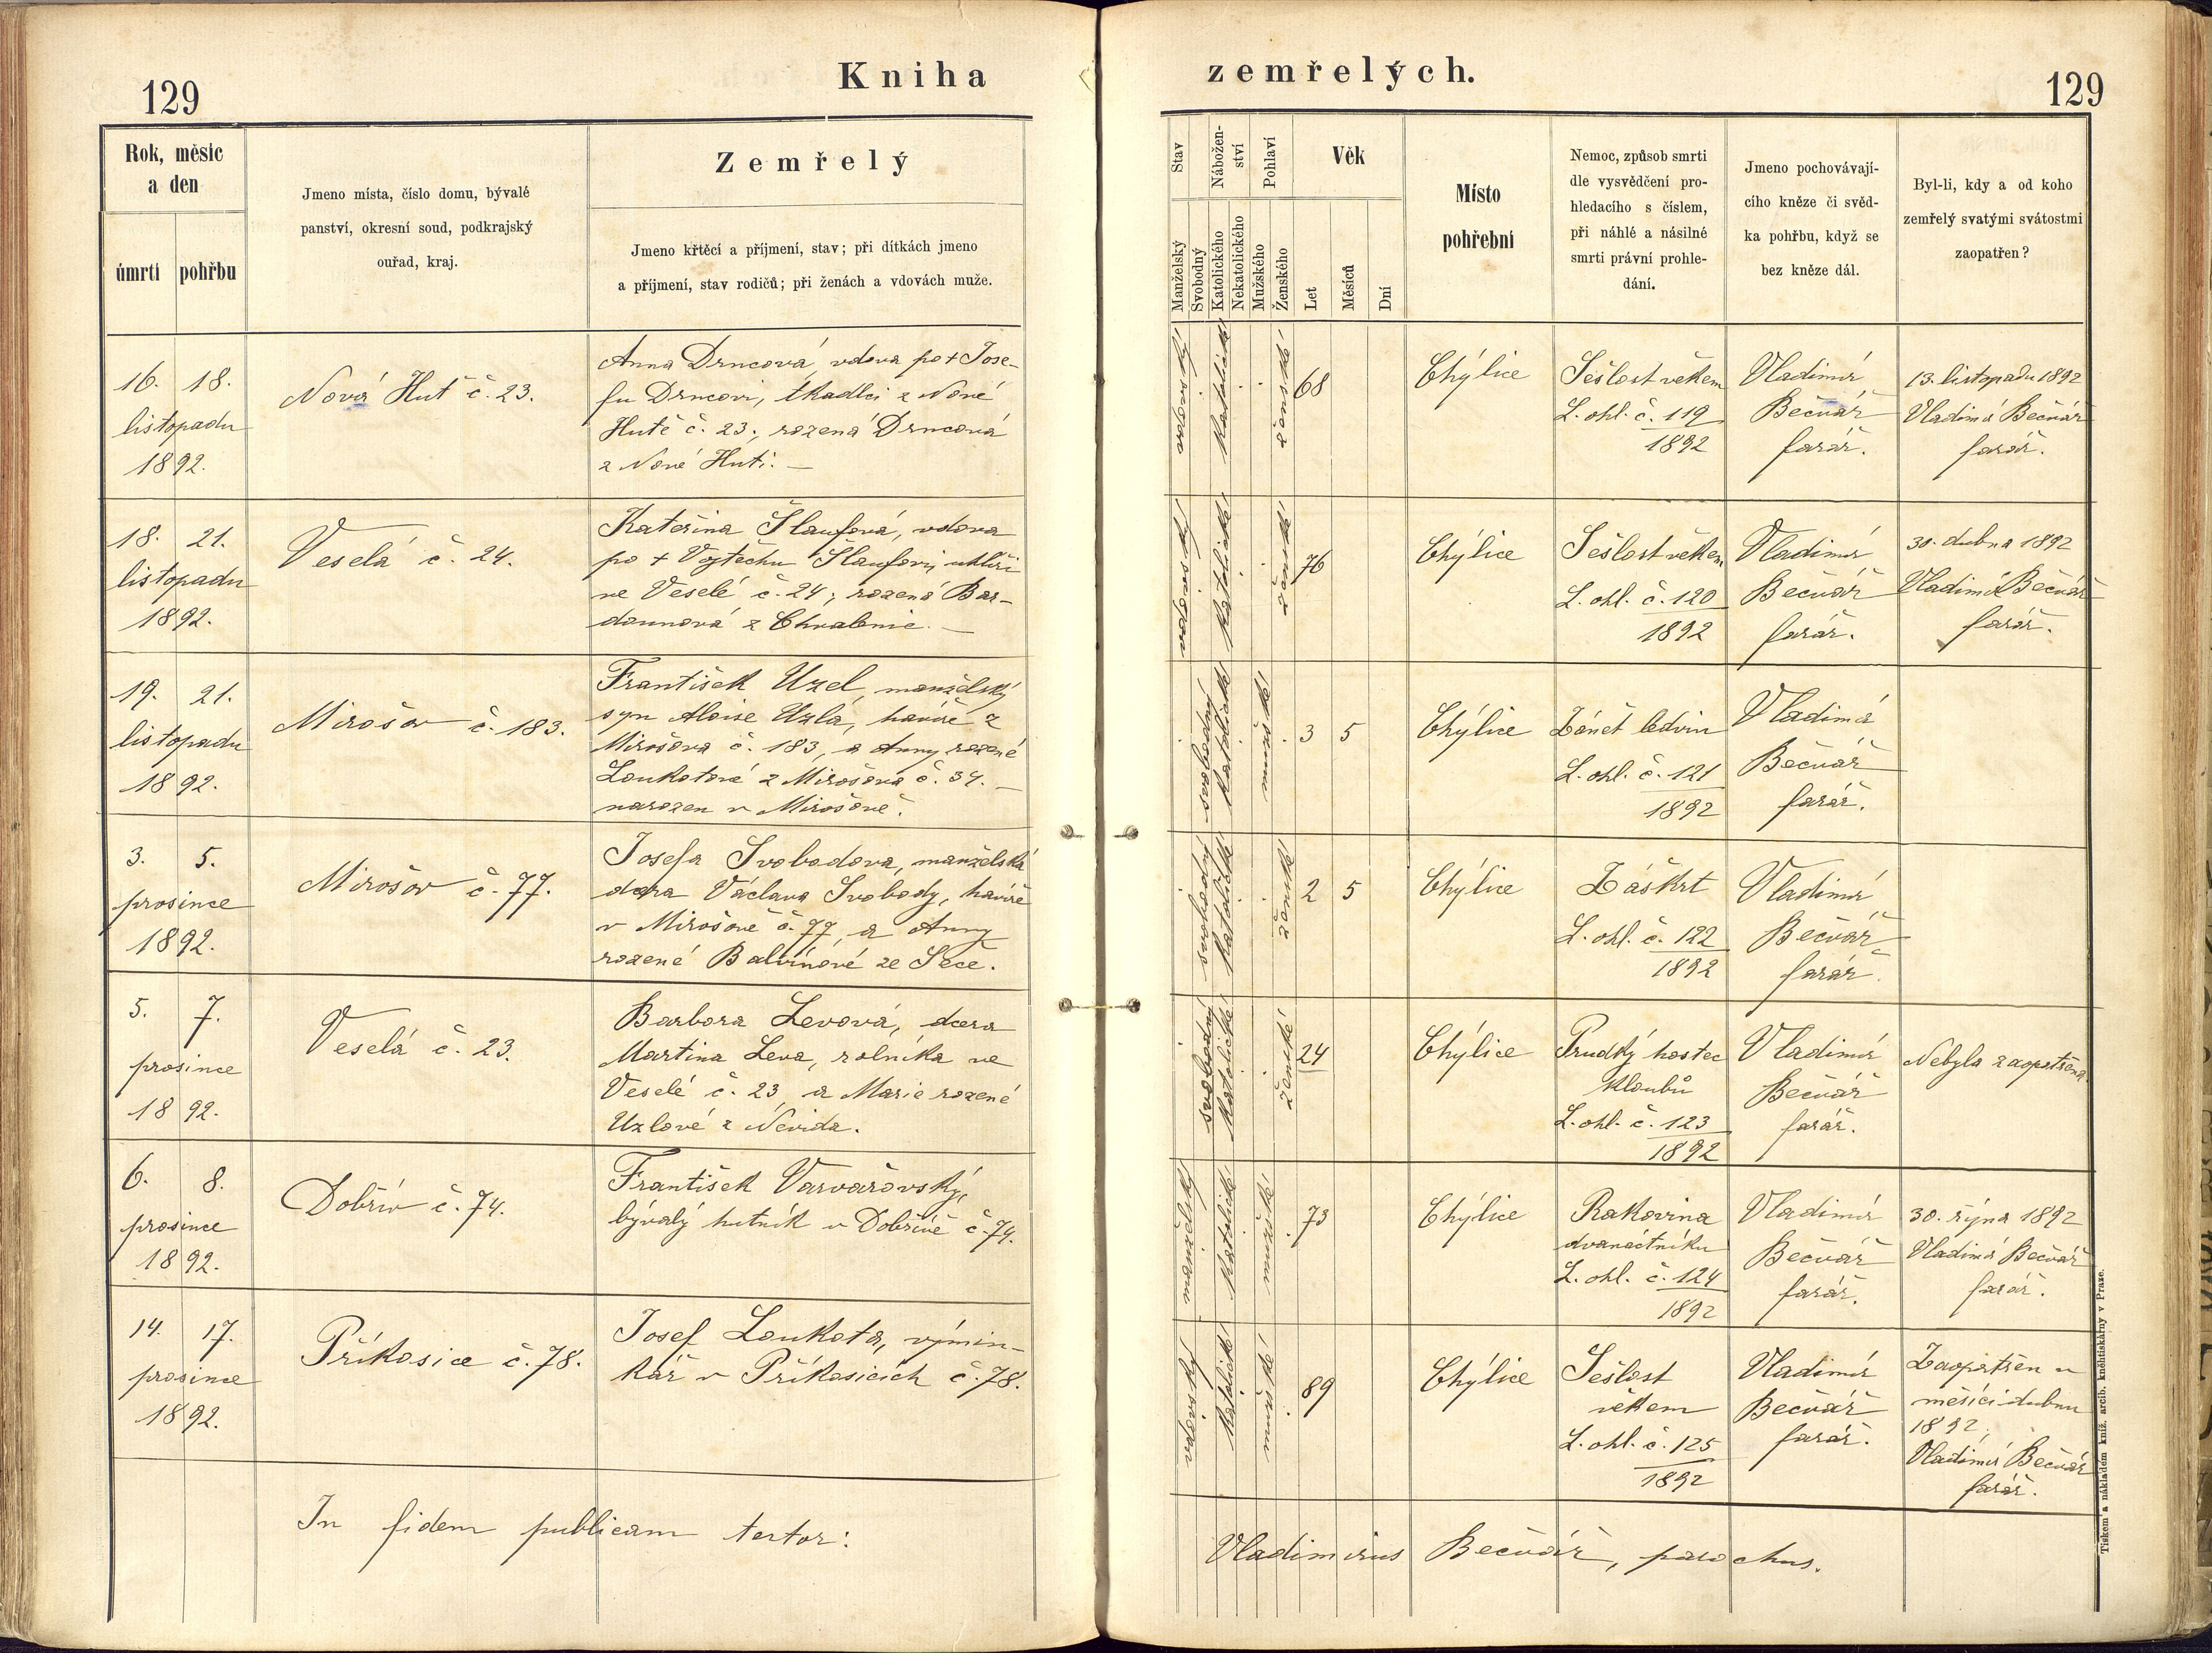 Kniha zemřelých.
129
129
Rok, měsíc
a den
úmrtí pohřbu
Jmeno místa, číslo domu, bývalé
panství, okresní soud, podkrajský
ouřad, kraj.
Zemřelý
Jmeno křtěcí a příjmení, stav; při dítkách jmeno
a příjmení, stav rodičů; při ženách a vdovách muže.
Stav
Manželský
Svobodný
Nábožen-
ství
Katolického
Nekatolického
Pohlaví
Mužského
Ženského
Věk
Let
Měsíců
Dní
Místo
pohřební
Nemoc, způsob smrti
dle vysvědčení pro-
hledacího s číslem,
při náhlé a násilné
smrti právní prohle-
dání.
Jmeno pochovávají-
cího kněze či svěd-
ka pohřbu, když se
bez kněze dál.
Byl-li, kdy a od koho
zemřelý svatými svátostmi
zaopatřen?
16. 18.
listopadu
1892.
Nová Huť č. 23.
Anna Drncová, vdova po + Jose-
fu Drncovi, tkadlci z Nové
Hutě č. 23., rozená Drncová
z Nové Huti. —
katolické
ženské
68
Chýlice
Sešlost věkem
L. ohl. č. 119
1892
Vladimír
Bečvář
farář.
13. listopadu 1892
Vladimír Bečvář
farář.
18. 21.
listopadu
1892.
Veselá č. 24.
Kateřina Šlaufová, vdova
po + Vojtěchu Šlaufovi, uhlíři
ve Veselé č. 24; rozená Bar-
dounová z Chvalenic. —
katolické
ženské
76
Chýlice
Sešlost věkem
L. ohl. č. 120
1892
Vladimír
Bečvář
farář.
30. dubna 1892
Vladimír Bečvář
farář.
19. 21.
listopadu
1892.
Mirošov č. 183.
František Uzel, manželský
syn Aloise Uzla, havíře z
Mirošova č. 183, a Anny rozené
Loukotové z Mirošova č. 34. —
narozen v Mirošově.
svobodný
katolické
mužské
3 5
Chýlice
Zánět ledvin
L. ohl. č. 121
1892
Vladimír
Bečvář
farář.
3. 5.
prosince
1892.
Mirošov č. 77.
Josefa Svobodova, manželská
dcera Václava Svobody, havíře
v Mirošově č. 77, a Anny
rozené Balvínové ze Seče.
svobodný
katolické
ženské
2 5
Chýlice
Záškrt
L. ohl. č. 122
1892
Vladimír
Bečvář
farář.
5. 7.
prosince
1892.
Veselá č. 23.
Barbora Levová, dcera
Martina Leva, rolníka ve
Veselé č. 23, a Marie rozené
Uzlové z Nevida.
svobodný
katolické
ženské
24
Chýlice
Prudký hostec
kloubů
L. ohl. č. 123
1892
Vladimír
Bečvář
farář.
Nebyla zaopatřena.
6. 8.
prosince
1892.
Dobřív č. 74.
František Varvařovský,
bývalý hutník v Dobřívě č. 74.
manželský
katolické
mužské
73
Chýlice
Rakovina
dvanáctníku
L. ohl. č. 124
1892
Vladimír
Bečvář
farář.
30. října 1892
Vladimír Bečvář
farář.
14. 17.
prosince
1892.
Příkosice č. 78.
Josef Loukota, výmin-
kář v Příkosicích č. 78.
katolické
mužské
89
Chýlice
Sešlost
věkem
L. ohl. č. 125
1892
Vladimír
Bečvář
farář.
Zaopatřen v
měsíci dubnu
1892,
Vladimír Bečvář
farář.
In fidem publicam testor:
Vladimirus Bečvář, parochus.
Tiskem a nákladem kníž. arcib. kněhtiskárny v Praze.